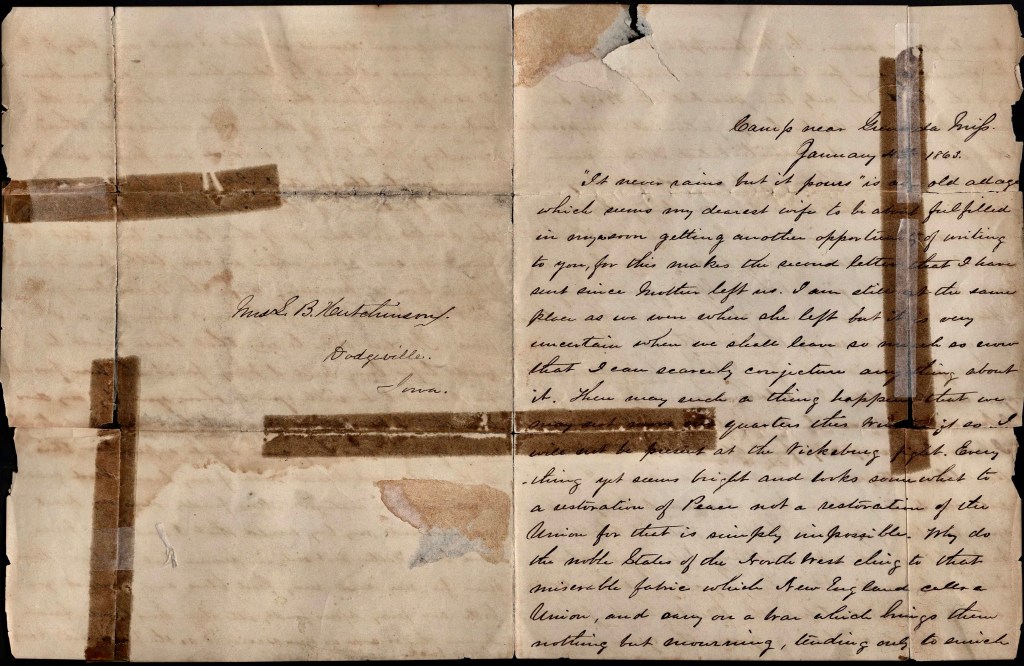 Mrs E. B. Hutchinson.
Dodgeville.
Iowa.
Camp near Grenada Miss.
January 1863.
"It never rains but it pours" is an old adage
which seems my dearest wife to be about fulfilled
in my soon getting another opportunity of writing
to you, for this makes the second letter that I have
sent since Mother left us. I am still at the same
place as we were when she left but it is very
uncertain when we shall leave so much so now
that I can scarcely conjecture anything about
it. There may such a thing happen that we
may not move quarters this Winter if so I
will not be present at the Vicksburg fight. Every
thing yet seems bright and looks somewhat to
a restoration of Peace not a restoration of the
Union for that is simply impossible. Why do
the noble States of the North West cling to that
miserable fabric which New England calls a
Union, and carry on a War which brings them
nothing but mourning, tending only to enrich